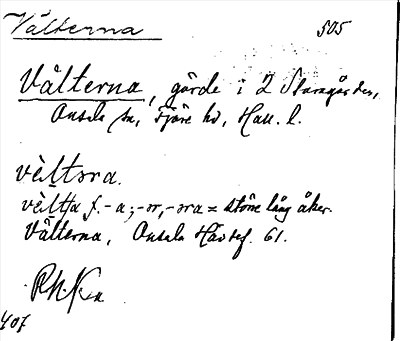 Välterna 505
Välterna, gärde i 2 Staragården,
Onsala sn, Fjäre hd, Hall. l.
vèltəra.
vèlta f. -a; -ər, -əra = större lång åker.
Välterna, Onsala Häradsf. 61.
407